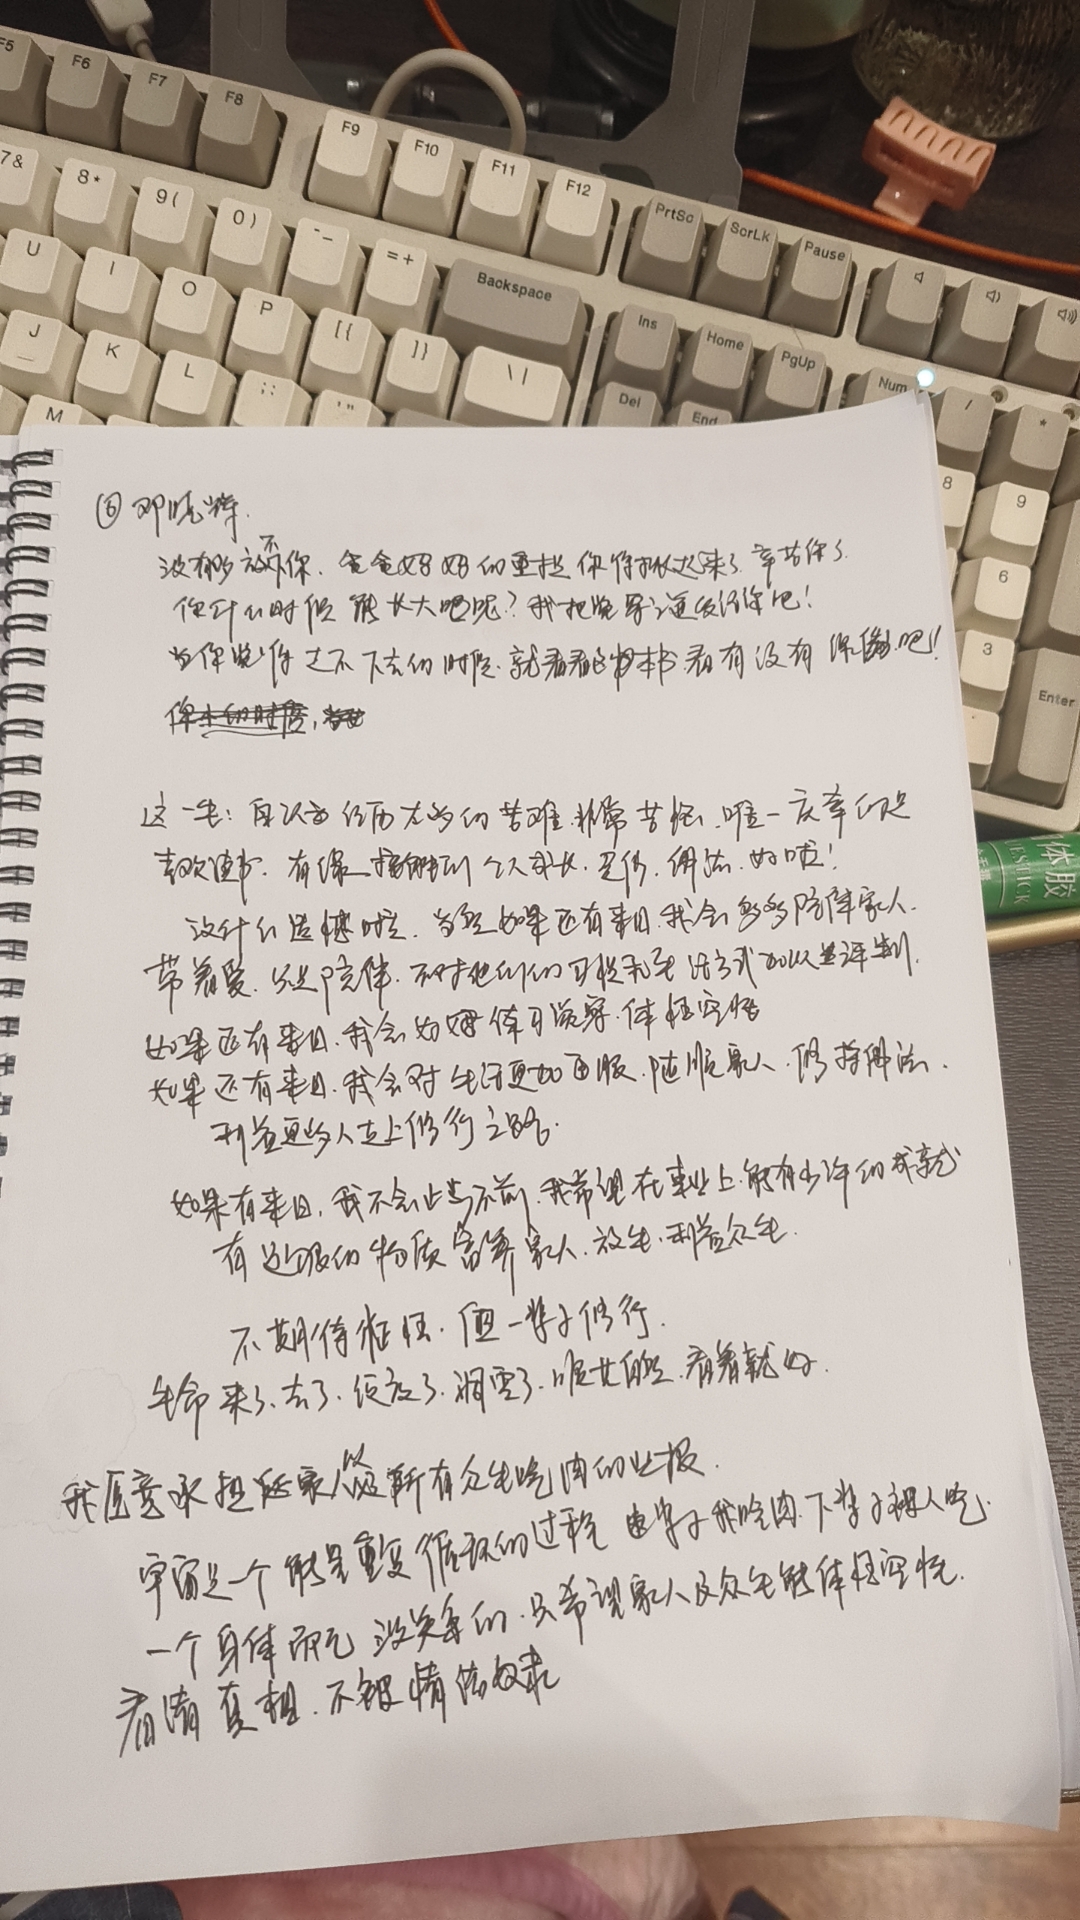 F5 F6 F7 F8 F9 F10 F11 F12 PrtSc ScrLk Pause
7& 8* 9( 0) -_ =+ Backspace Ins Home PgUp Num / *
U I O P [{ ]} \| Del End 8 9
J K L ;: '" 6
M 3 Enter
体胶
⑥邓晓辉.
没有多放不你. 爸爸好好的 你 起来了. 辛苦你了.
你什么时候能长大吧呢? 我把 发给你吧!
当你觉得过不下去的时候. 就看看这本书. 看有没有 吧!!
这一生: 自认为经历太多的苦难. 非常苦恼. 唯一庆幸的是
喜欢读书. 有缘接触到个人成长. 佛法. 好哎!
没什么遗憾啦. 当然如果还有来日. 我会多多陪伴家人.
带着爱. 只是陪伴. 不对他们的习惯和生活方式加以 评判.
如果还有来日. 我会 练习觉察. 体悟空性
如果还有来日. 我会对生活更加臣服. 随顺家人. 修持佛法.
利益更多人走上修行之路.
如果有来日, 我不会止步不前. 我希望在事业上. 能有少许的成就
有 的物质 家人. 放生. 利益众生.
不期待证悟. 但一辈子修行.
生命来了. 去了. 绽放了. 凋零了. 顺其自然. 看着就好.
我愿意承担 家人以及所有众生吃肉的业报.
宇宙是一个能量重复循环的过程 这辈子我吃肉. 下辈子被人吃.
一个身体而已 没关系的. 只希望家人及众生能体悟空性.
看清真相. 不被情绪奴隶